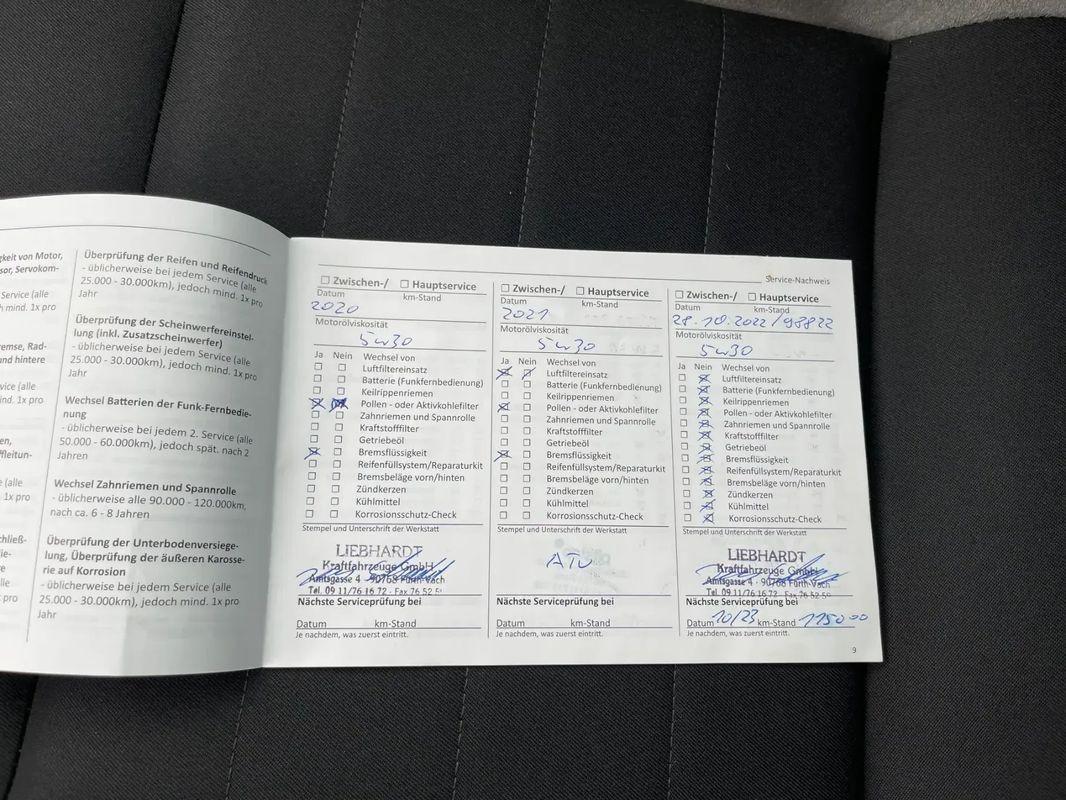 gkeit von Motor,
sor, Servokom-
Service (alle
h mind. 1x pro
emse, Rad-
und hintere
vice (alle
ind. 1x pro
en,
ffleitun-
(alle
1x pro
chließ-
ie-
re
lle
ro
Überprüfung der Reifen und Reifendruck
- üblicherweise bei jedem Service (alle
25.000 - 30.000km), jedoch mind. 1x pro
Jahr
Überprüfung der Scheinwerfereinstel-
lung (inkl. Zusatzscheinwerfer)
- üblicherweise bei jedem Service (alle
25.000 - 30.000km), jedoch mind. 1x pro
Jahr
Wechsel Batterien der Funk-Fernbedie-
nung
- üblicherweise bei jedem 2. Service (alle
50.000 - 60.000km), jedoch spät. nach 2
Jahren
Wechsel Zahnriemen und Spannrolle
- üblicherweise alle 90.000 - 120.000km,
nach ca. 6 - 8 Jahren
Überprüfung der Unterbodenversiege-
lung, Überprüfung der äußeren Karosse-
rie auf Korrosion
- üblicherweise bei jedem Service (alle
25.000 - 30.000km), jedoch mind. 1x pro
Jahr
Service-Nachweis
Zwischen-/ Hauptservice
Datum km-Stand
2020
Motorölviskosität
5w30
Ja Nein Wechsel von
Luftfiltereinsatz
Batterie (Funkfernbedienung)
Keilrippenriemen
Pollen - oder Aktivkohlefilter
Zahnriemen und Spannrolle
Kraftstofffilter
Getriebeöl
Bremsflüssigkeit
Reifenfüllsystem/Reparaturkit
Bremsbeläge vorn/hinten
Zündkerzen
Kühlmittel
Korrosionsschutz-Check
Stempel und Unterschrift der Werkstatt
LIEBHARDT
Kraftfahrzeuge GmbH
Amtsgasse 4 · 90768 Fürth-Vach
Tel. 09 11/76 16 72 · Fax 76 52 59
Nächste Serviceprüfung bei
Datum km-Stand
Je nachdem, was zuerst eintritt.
Zwischen-/ Hauptservice
Datum km-Stand
2021
Motorölviskosität
5w30
Ja Nein Wechsel von
Luftfiltereinsatz
Batterie (Funkfernbedienung)
Keilrippenriemen
Pollen - oder Aktivkohlefilter
Zahnriemen und Spannrolle
Kraftstofffilter
Getriebeöl
Bremsflüssigkeit
Reifenfüllsystem/Reparaturkit
Bremsbeläge vorn/hinten
Zündkerzen
Kühlmittel
Korrosionsschutz-Check
Stempel und Unterschrift der Werkstatt
ATU
Nächste Serviceprüfung bei
Datum km-Stand
Je nachdem, was zuerst eintritt.
Zwischen-/ Hauptservice
Datum km-Stand
28.10.2022/98822
Motorölviskosität
5w30
Ja Nein Wechsel von
Luftfiltereinsatz
Batterie (Funkfernbedienung)
Keilrippenriemen
Pollen - oder Aktivkohlefilter
Zahnriemen und Spannrolle
Kraftstofffilter
Getriebeöl
Bremsflüssigkeit
Reifenfüllsystem/Reparaturkit
Bremsbeläge vorn/hinten
Zündkerzen
Kühlmittel
Korrosionsschutz-Check
Stempel und Unterschrift der Werkstatt
LIEBHARDT
Kraftfahrzeuge GmbH
Amtsgasse 4 · 90768 Fürth-Vach
Tel. 09 11/76 16 72 · Fax 76 52 59
Nächste Serviceprüfung bei
Datum 10/23 km-Stand 115000
Je nachdem, was zuerst eintritt.
9